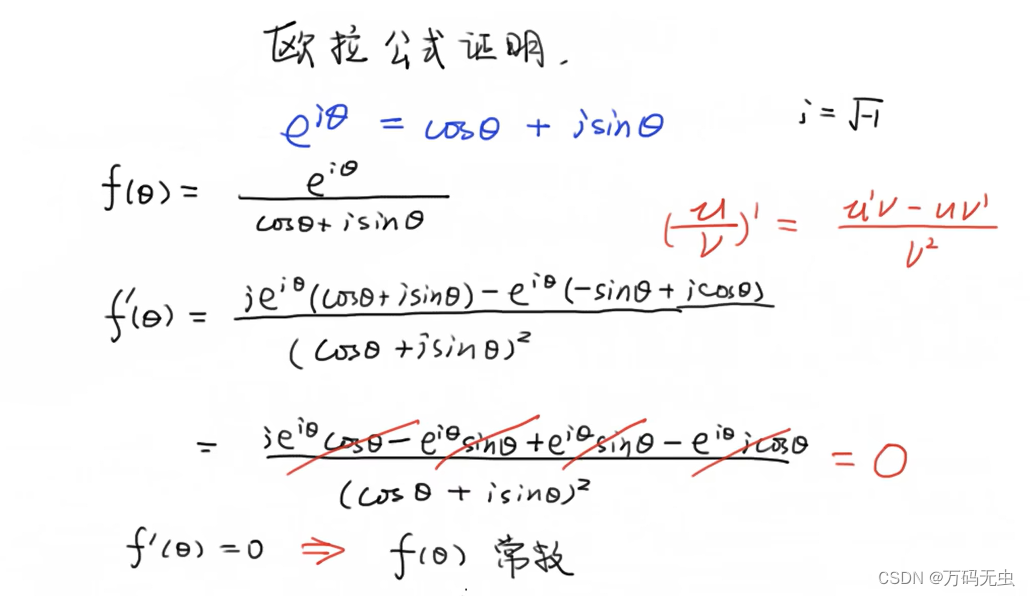 欧拉公式证明.
e^{iθ} = cosθ + isinθ
i = √-1
f(θ) = e^{iθ} / (cosθ + isinθ)
(u/v)' = (u'v - uv') / v²
f'(θ) = (ie^{iθ}(cosθ + isinθ) - e^{iθ}(-sinθ + icosθ)) / (cosθ + isinθ)²
= (ie^{iθ}cosθ - e^{iθ}sinθ + e^{iθ}sinθ - e^{iθ}icosθ) / (cosθ + isinθ)² = 0
f'(θ) = 0 ⇒ f(θ) 常数
CSDN @万码无虫